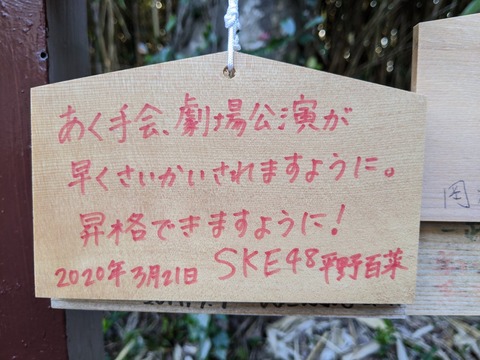 あく手会、劇場公演が
早くさいかいされますように。
昇格できますように!
2020年3月21日 SKE48平野百菜
岡